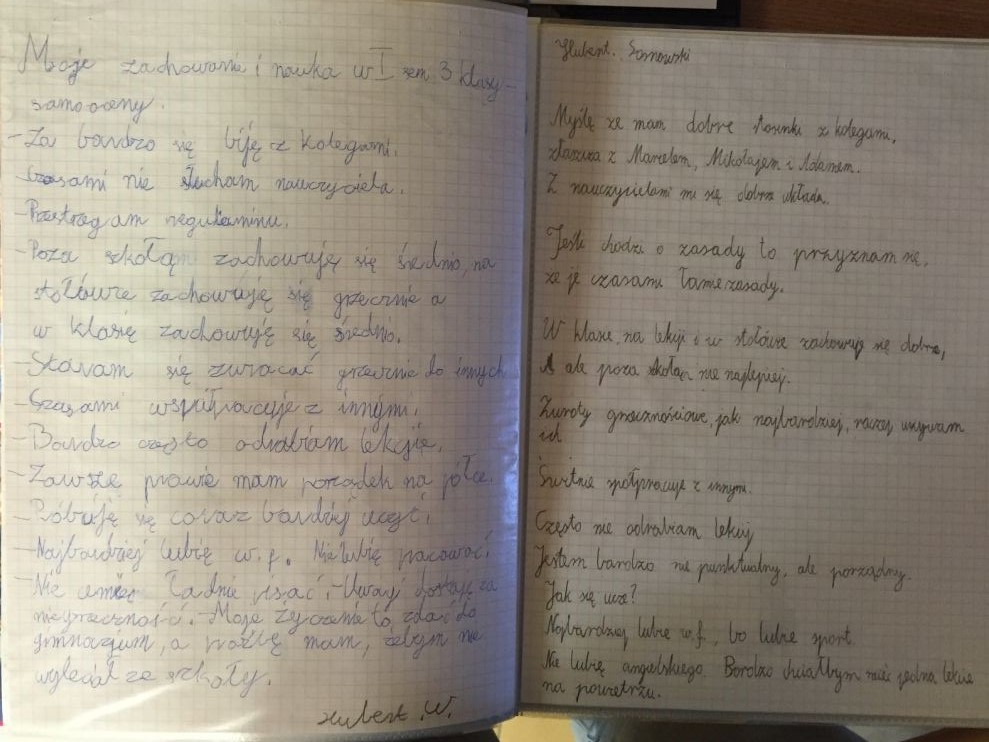 Moje zachowanie i nauka w I sem 3 klasy -
samooceny.
- Za bardzo się biję z kolegami.
- Czasami nie słucham nauczyciela.
- Przestrzegam regulaminu.
- Poza szkołąn zachowuję się średnio, na
stołówce zachowuję się grzecznie a
w klasię zachowuję się średnio.
- Staram się zwracać grzecznie do innych
- Czasami współpracuje z innymi.
- Bardzo często odrabiam lekcjie.
- Zawszę prawie mam porządek na półce.
- Próbuję się coraz bardziej uczyć.
- Najbardziej lubię w.f. Nie lubię pracować.
- Nie umiię ładnie pisać. - Uwagi dostaję za
niegrzeczność. - Moje życzenie to, zdać do
gimnazjum, a prożbę mam, żebym nie
wyleciał ze szkoły.
Hubert .W.
Hubert. Sosnowski
Myślę ze mam dobre stosunki z kolegami,
złaszcza z Marcelem, Mikołajem i Adamem.
Z nauczycielami mi się dobrze układa.
Jeśli chodzi o zasady to przyznam się,
ze je czasami łamie zasady.
W klasie, na lekcji i w stołówce zachowuje się dobrze,
ale poza szkołąn nie najlepiej.
Zwroty grzecznościowe, jak najbardziej, raczej uzywam
ich
Świetnie spółpracuje z innymi.
Często nie odrabiam lekcji
Jestem bardzo nie punktualny, ale porządny.
Jak się ucze?
Najbardziej lubie w.f., bo lubie sport.
Nie lubię angielskiego. Bardzo chciałbym mieć jedną lekcie
na powietrzu.